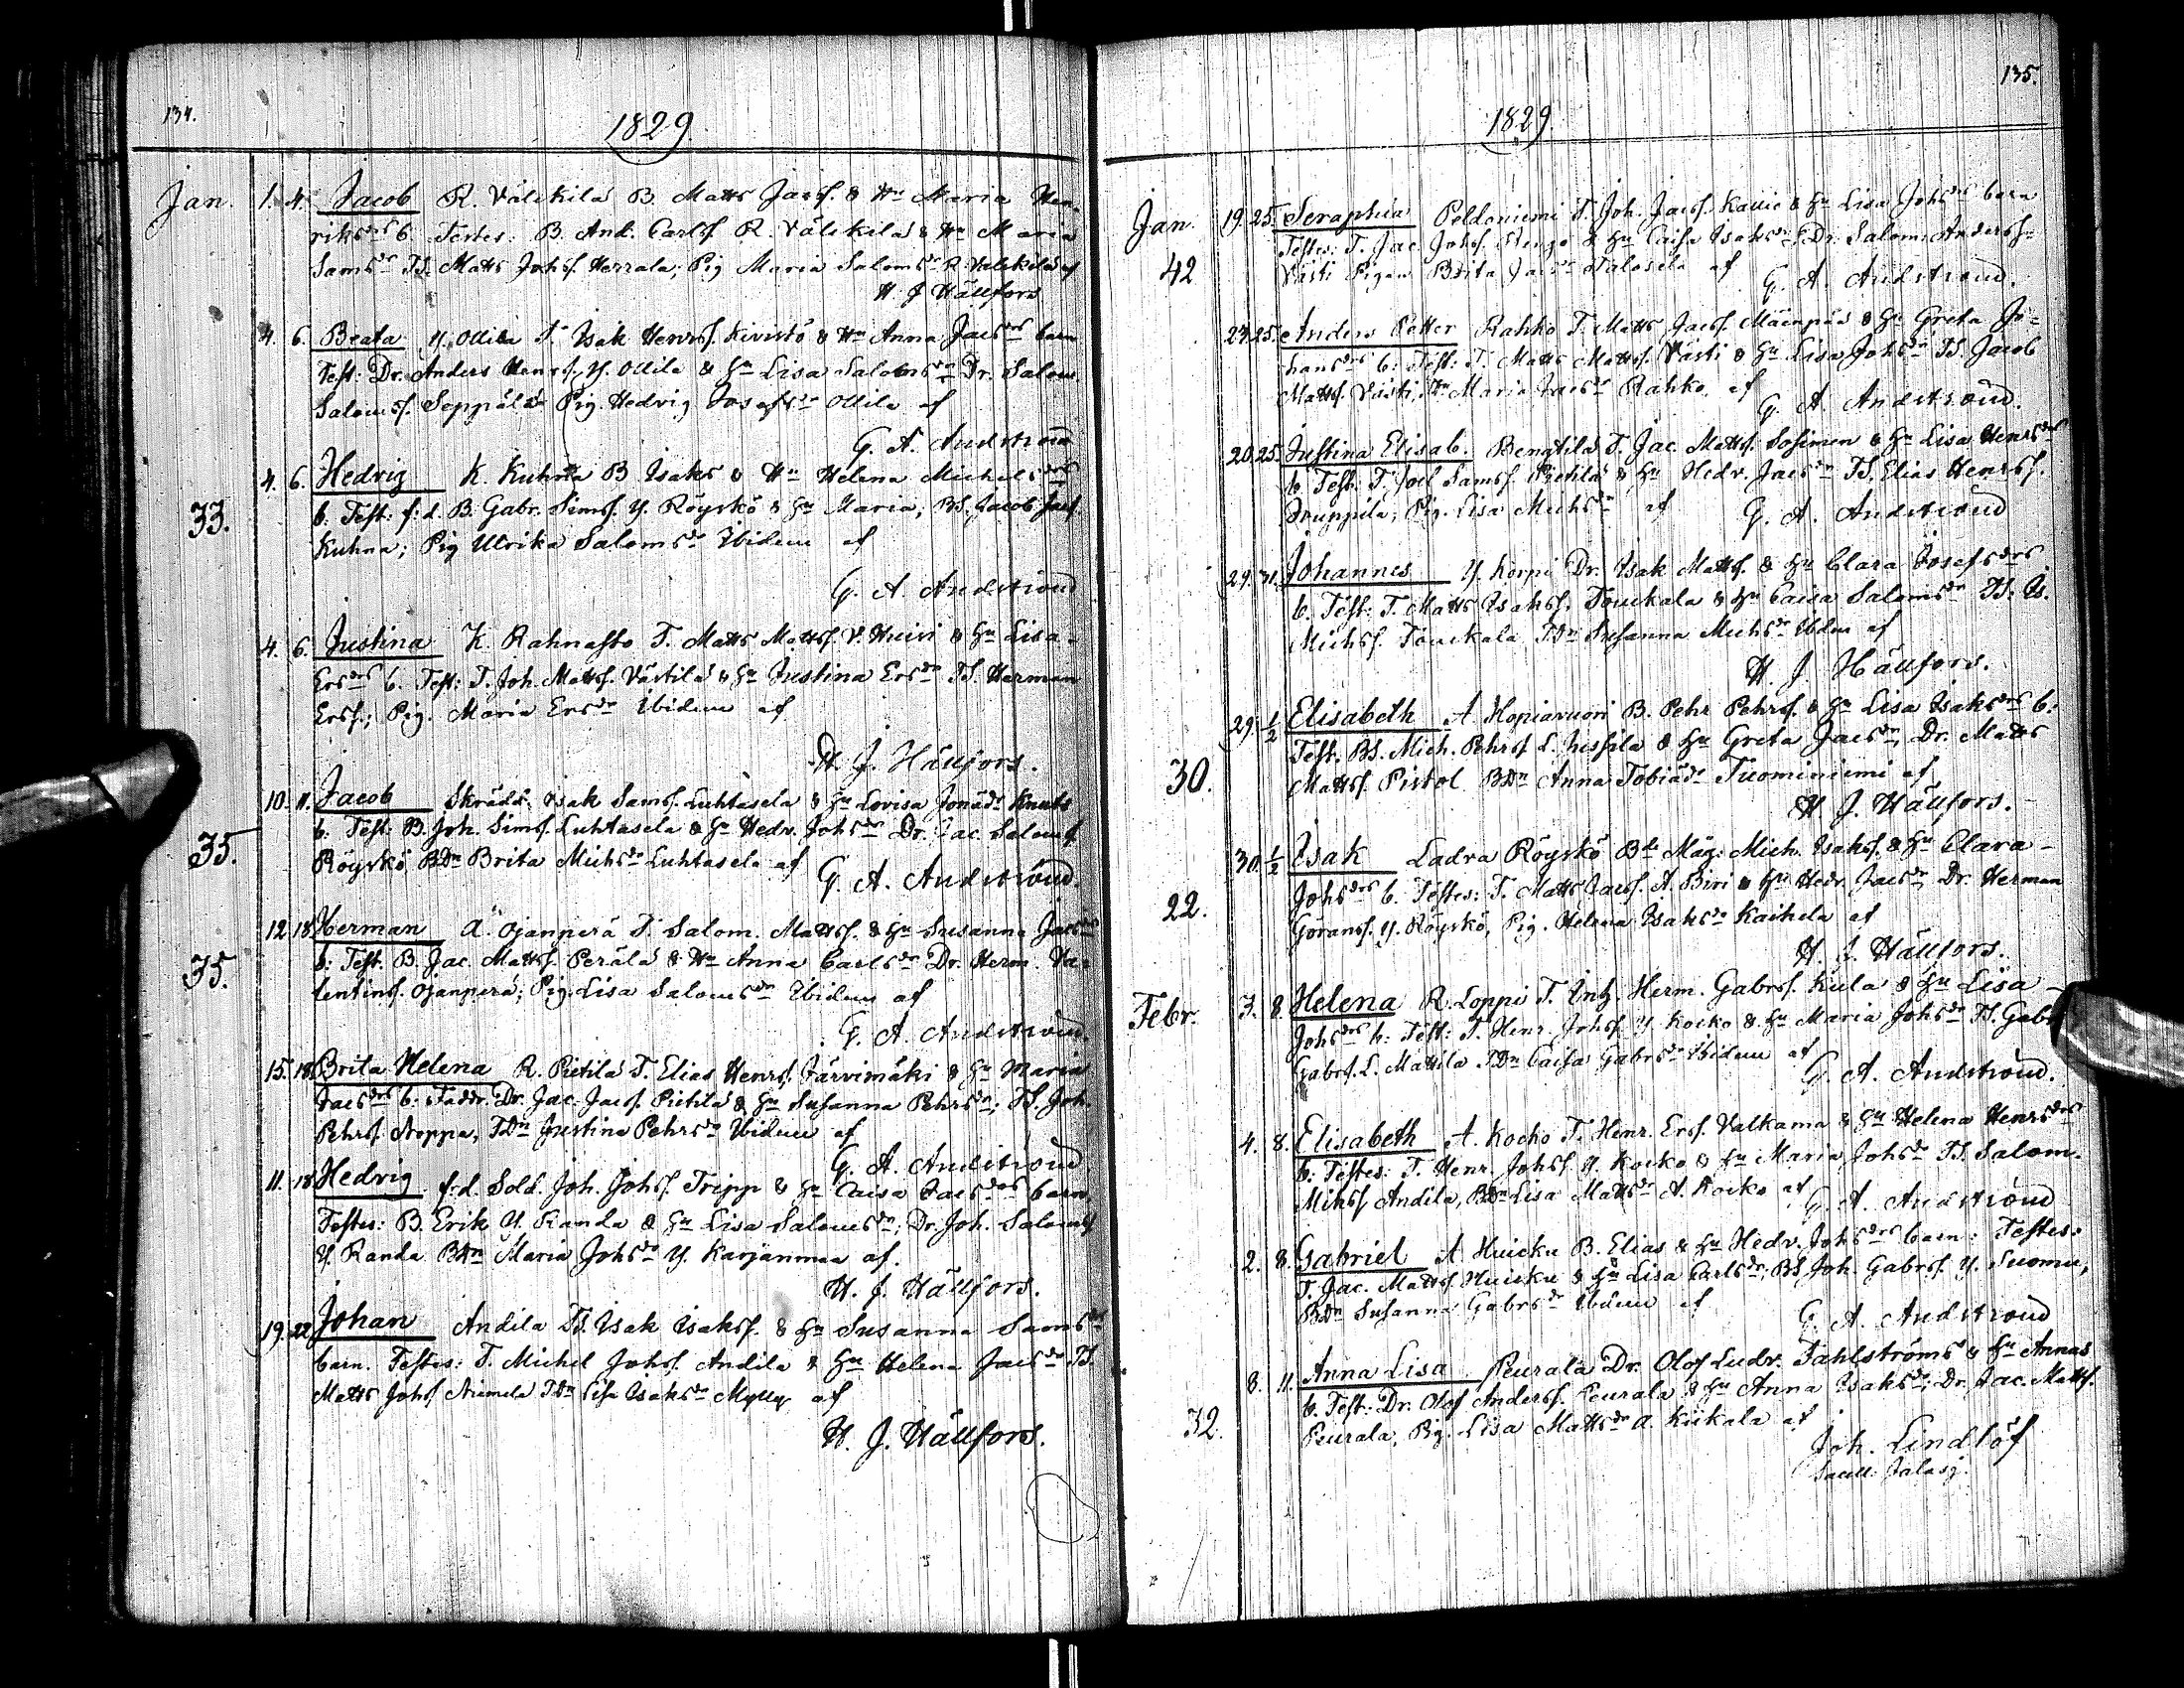 134.
1829
Jan. 1. 4. Jacob R. Välikilä B. Matts Jacsf. & Hu Maria Hen-
riksdrs b. Testes: B. And. Carlsf R. Välikilä & Hu Maria
Samsdr TS. Matts Johsf. Herrala; Pig Maria Salomsdr R. Välikilä af
H. J Hällfors
4. 6. Beata Y. Ollila T. Isak Henrsf. Kivistö & Hu Anna Jacsdrs barn
Test: Dr. Anders Henrsf. Y. Ollila & Hu Lisa Salomsdr Dr. Salom.
Salomsf. Seppälä Pig. Hedvig Josefsdr Ollila af
G. A. Andström
4. 6. Hedvig K. Kuhna B Isaks & Hu Helena Michelsdrs
33. b: Test: f: d. B. Gabr. Simsf. Y. Röyskö & Hu Maria; BS. Jacob Jacsf.
Kuhna; Pig Ulrika Salomsdr Ibidem af
G. A Andström
4. 6. Justina K. Rahnasto T. Matts Mattsf. V. Huivi & Hu Lisa
Ersdrs b. Test: T. Joh. Mattsf. Västilä & Hu Justina Ersdr TS. Herman
Ersf.; Pig. Maria Ersdr Ibidem af
H. J. Hällfors.
10. 11. Jacob Skrädd. Isak Samsf. Luhtasela & Hu Lovisa Jonädr Knuts
35. b: Test: B. Joh. Simsf. Luhtasela & Hu Hedv. Johsdr Dr. Jac. Salomsf
Röyskö, BDr Brita Michsdr Luhtasela af
G. A. Andström.
12. 18. Herman A. Ojanperä T. Salom. Mattsf. & Hu Susanna Jacsdrs
35. b: Test. B. Jac. Mattsf. Perälä & Hu Anna Carlsdr Dr. Herm. Va-
lentinsf. Ojanperä; Pig. Lisa Salomsdr Ibidem af
G. A Andström.
15. 18. Brita Helena R. Pietilä T. Elias Henrsf. Järvimäki & Hu Maria
Jacsdrs b. Faddr. Dr. Jac. Jacsf. Pietilä & Hu Susanna Pehrsdr; TS. Joh.
Pehrsf. Noppa, TDr Justina Pehrsdr Ibidem af
G. A. Andström
11. 18. Hedvig f: d. Sold. Joh. Johsf. Tripp & Hu Caisa Jacsdrs barn
Testes: B. Erik Y. Randa & Hu Lisa Salomsdr; Dr. Joh. Salomsf
Y. Randa BDr Maria Johsdr Y. Karjanmaa af.
H. J. Hällfors.
19. 22. Johan Andila TS. Isak Isaksf. & Hu Susanna Samsdrs
barn. Testes: T. Michel Johsf. Andila & Hu Helena Jacsdr TS.
Matts Johsf Niemelä TDr Lisa Isaksdr Mylly af
H. J. Hällfors.
135.
1829
Jan. 19. 25. Seraphia Peldoniemi T. Joh. Jacsf. Kauic & Hu Lisa Johsdrs barn
42 Testes: T. Jac. Johsf. & Hu Caisa Isaksdr; Dr. Salom. Andersf.
Västi Pigan Brita Jacsdr Talosela af
G. A. Andström.
23. 25. Anders Petter Rahko T. Matts Jacsf. Mäenpää & Hu Greta Jo-
hansdrs b: Test: T. Matts Mattsf. Västi & Hu Lisa Johsdr TS. Jacob
Mattsf. Västi, TDr Maria Jacsdr Rahko, af
G. A. Andström.
20. 25. Justina Elisab. Bengtilä T. Jac. Mattsf. Sosimen & Hu Lisa Henrsdrs
b. Test: T. Joel Samsf. Pietilä & Hu Hedv. Jacsdr TS. Elias Henrsf.
Druppila; Pig. Lisa Michsdr af
G. A. Andström
29. 31. Johannes Y. Korpi Dr. Isak Mattsf. & Hu Clara Josefsdrs
b. Test: T. Matts Isaksf. Touckala & Hu Caisa Salomsdr TS: Is.
Michsf. Touckala TDr Susanna Michsdr Ibdm af
H. J. Hällfors.
29. 1/2 Elisabeth A. Hopiavuori B. Pehr Pehrsf. & Hu Lisa Isaksdrs b:
30. Test. BS. Mich. Pehrsf L. Nissilä & Hu Greta Jacsdr; Dr. Matts
Mattsf. Pistol BDr Anna Tobiädr Tuominiemi af
H. J. Hällfors.
30. 1/2 Isak Ladra Röyskö Bde Måg: Mich. Isaksf. & Hu Clara
22. Johsdrs b. Testes: T. Matts Jacsf. A. Biri & Hu Hedv. Jacsdr Dr. Herman
Göransf. Y. Röyskö, Pig. Helena Isaksdr Kaihela af
H. J. Hällfors.
Febr. 3. 8. Helena R. Loppi T. Inh. Herm. Gabrsf. Kula & Hu Lisa
Johsdrs b: Test: T. Henr. Johsf. Y. Kocko & Hu Maria Johsdr TS. Gabr
Gabrsf. L. Mattila TDr Caisa Gabrsdr Ibidem af
G. A. Andström.
4. 8. Elisabeth A. Kocko T. Henr. Ersf. Valkama & Hu Helena Henrsdrs
b: Testes: T. Henr. Johsf. Y. Kocko & Hu Maria Johsdr TS. Salom.
Mihsf Andila, BDr Lisa Mattsdr A. Kocko af
G. A. Andström
2. 8. Gabriel A Huicku B. Elias & Hu Hedv. Johsdrs barn: Testes:
T. Jac. Mattsf. Huicku & Hu Lisa Carlsdr; BS. Joh. Gabrsf. Y. Suomu,
BDr Susanna Gabrsdr Ibidem af
G. A. Andström
8. 11. Anna Lisa Peurala Dr. Olof Ludv. Fahlströms & Hu Annas
b. Test: Dr. Olof Andersf. Peurala & Hu Anna Isaksdr; Dr. Jac. Mattsf.
32. Peurala, Pig. Lisa Mattsdr A. Kiikala af
Joh. Lindlöf
Sacell. Jalasj.